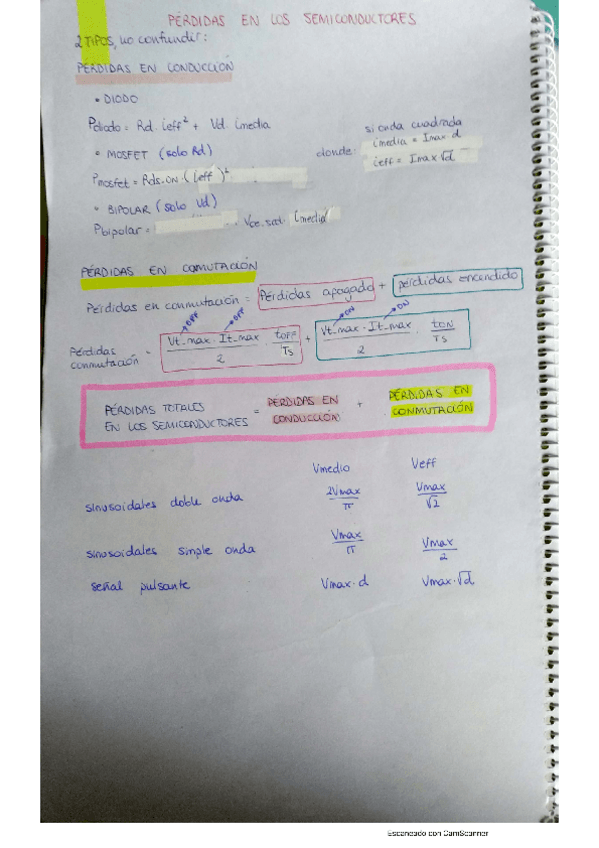 PÉRDIDAS EN LOS SEMICONDUCTORES
2 TIPOS, no confundir:
PÉRDIDAS EN CONDUCCIÓN
• DIODO
Pdiodo = Rd. ieff² + Vd. imedia
si onda cuadrada
imedia = Imax. d
donde:
ieff = Imax √d
• MOSFET (solo Rd)
Pmosfet = Rds.on. (ieff)²
• BIPOLAR (solo Vd)
Pbipolar = Vce.sat. imedia
PÉRDIDAS EN COMUTACIÓN
Pérdidas en conmutación = Pérdidas apagado + pérdidas encendido
OFF OFF ON ON
Pérdidas conmutación = Vt_max. It_max / 2 . tOFF / Ts + Vt_max. It_max / 2 . tON / Ts
PÉRDIDAS TOTALES EN LOS SEMICONDUCTORES = PERDIDAS EN CONDUCCIÓN + PÉRDIDAS EN CONMUTACIÓN
Vmedio Veff
sinusoidales doble onda 2Vmax / π Vmax / √2
sinusoidales simple onda Vmax / π Vmax / 2
señal pulsante Vmax. d Vmax. √d
Escaneado con CamScanner